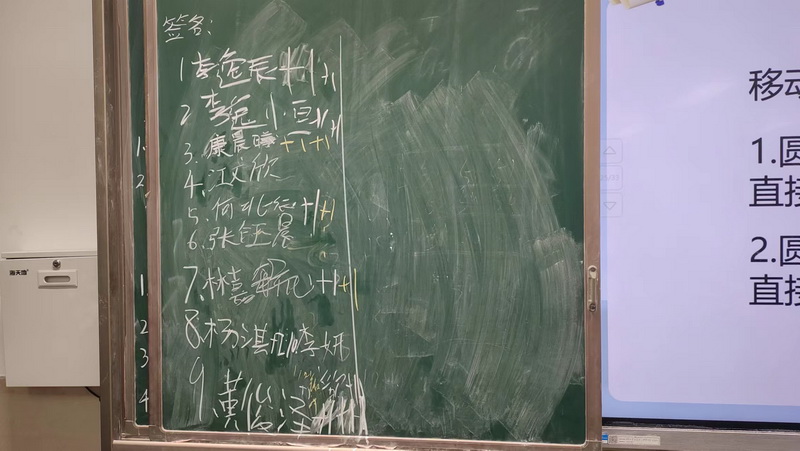 签名:
1 李逸辰 +1 +1
2 李 小
3. 康晨 +1 +1
4. 江文欣
5. 何 +1 +1
6. 张钰晨
7. 林嘉 +1 +1
8. 杨淇 李妍
9 黄俊泽
1.
2
1
2
3
4
移动
1.圆
直接
2.圆
直接